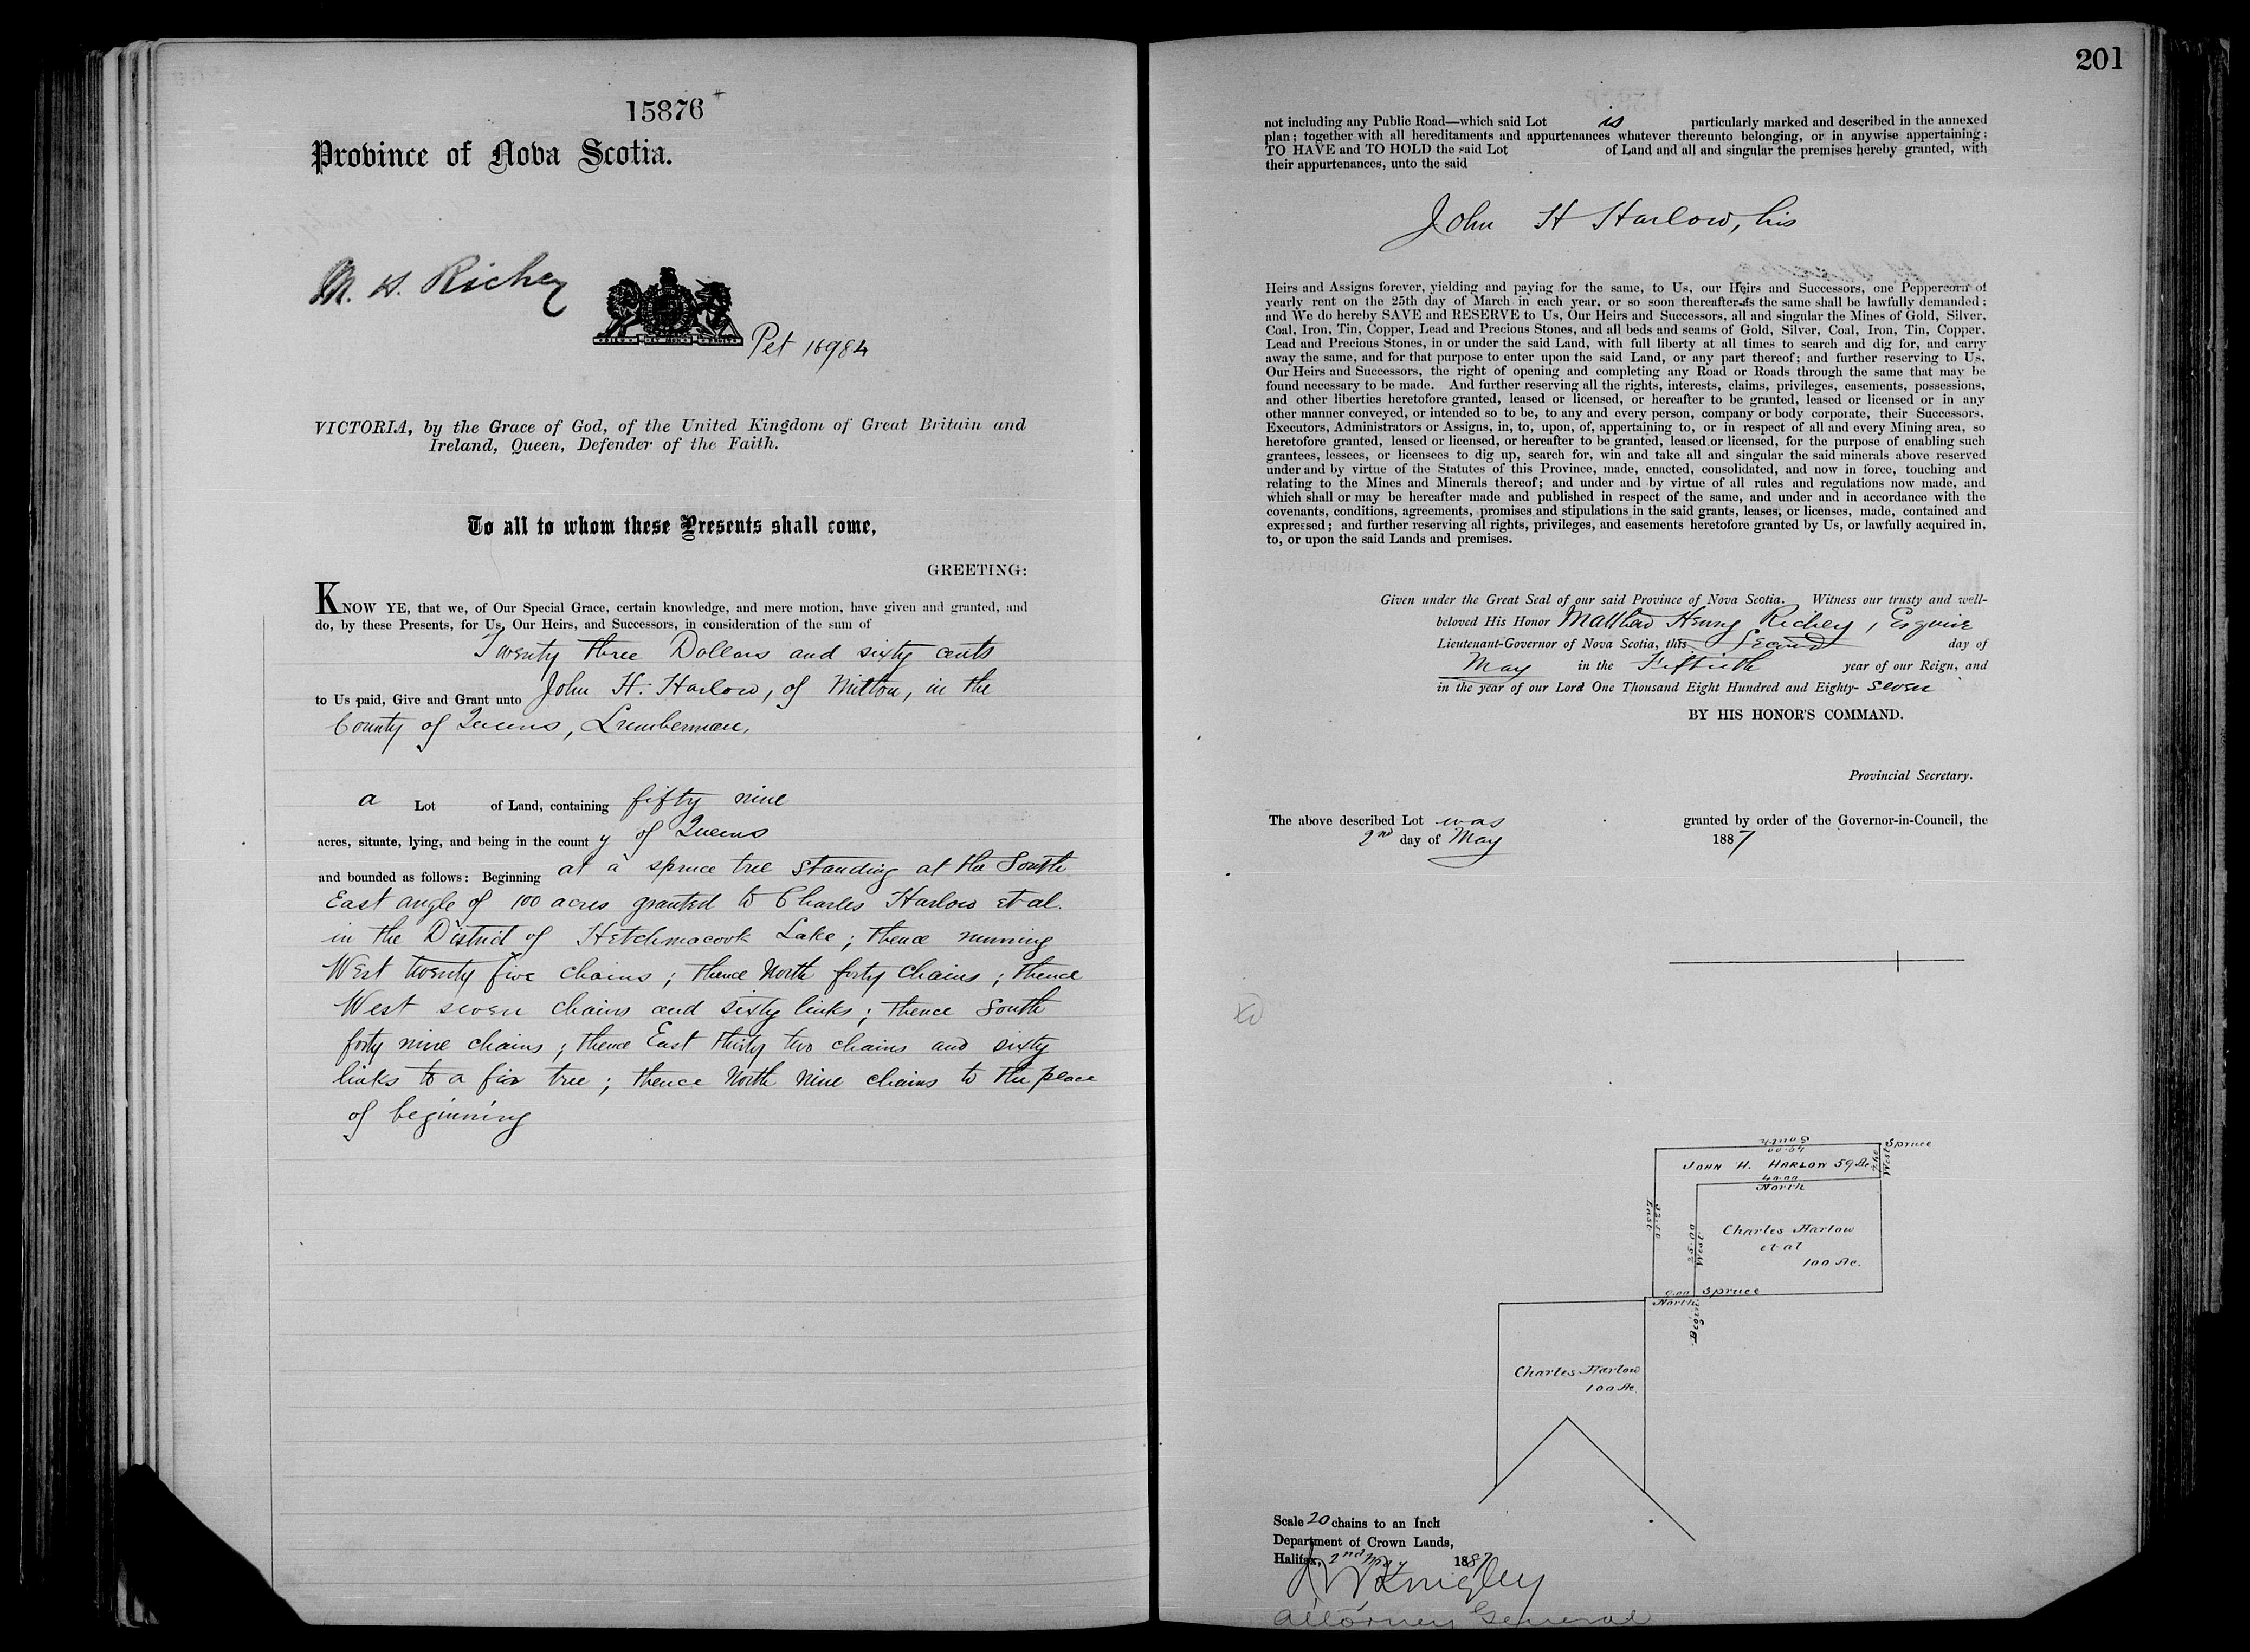 15876
Province of Nova Scotia.
M. H. Richey
Pet 16984
VICTORIA, by the Grace of God, of the United Kingdom of Great Britain and
Ireland, Queen, Defender of the Faith.
To all to whom these Presents shall come,
GREETING:
KNOW YE, that we, of Our Special Grace, certain knowledge, and mere motion, have given and granted, and
do, by these Presents, for Us, Our Heirs, and Successors, in consideration of the sum of
Twenty three Dollars and sixty cents
to Us paid, Give and Grant unto John H. Harlow, of Milton, in the
County of Queens, Lumberman,
a Lot of Land, containing fifty nine
acres, situate, lying, and being in the county of Queens
and bounded as follows: Beginning at a spruce tree standing at the South
East angle of 100 acres granted to Charles Harlow et al.
in the District of Hetchmacook Lake; thence running
West twenty five chains; thence North forty chains; thence
West seven chains and sixty links; thence South
forty nine chains; thence East thirty two chains and sixty
links to a fir tree; thence North nine chains to the place
of beginning
201
not including any Public Road—which said Lot is particularly marked and described in the annexed
plan; together with all hereditaments and appurtenances whatever thereunto belonging, or in anywise appertaining:
TO HAVE and TO HOLD the said Lot of Land and all and singular the premises hereby granted, with
their appurtenances, unto the said
John H Harlow, his
Heirs and Assigns forever, yielding and paying for the same, to Us, our Heirs and Successors, one Peppercorn of
yearly rent on the 25th day of March in each year, or so soon thereafter as the same shall be lawfully demanded:
and We do hereby SAVE and RESERVE to Us, Our Heirs and Successors, all and singular the Mines of Gold, Silver,
Coal, Iron, Tin, Copper, Lead and Precious Stones, and all beds and seams of Gold, Silver, Coal, Iron, Tin, Copper,
Lead and Precious Stones, in or under the said Land, with full liberty at all times to search and dig for, and carry
away the same, and for that purpose to enter upon the said Land, or any part thereof; and further reserving to Us,
Our Heirs and Successors, the right of opening and completing any Road or Roads through the same that may be
found necessary to be made. And further reserving all the rights, interests, claims, privileges, easements, possessions,
and other liberties heretofore granted, leased or licensed, or hereafter to be granted, leased or licensed or in any
other manner conveyed, or intended so to be, to any and every person, company or body corporate, their Successors,
Executors, Administrators or Assigns, in, to, upon, of, appertaining to, or in respect of all and every Mining area, so
heretofore granted, leased or licensed, or hereafter to be granted, leased or licensed, for the purpose of enabling such
grantees, lessees, or licensees to dig up, search for, win and take all and singular the said minerals above reserved
under and by virtue of the Statutes of this Province, made, enacted, consolidated, and now in force, touching and
relating to the Mines and Minerals thereof; and under and by virtue of all rules and regulations now made, and
which shall or may be hereafter made and published in respect of the same, and under and in accordance with the
covenants, conditions, agreements, promises and stipulations in the said grants, leases, or licenses, made, contained and
expressed; and further reserving all rights, privileges, and easements heretofore granted by Us, or lawfully acquired in,
to, or upon the said Lands and premises.
Given under the Great Seal of our said Province of Nova Scotia. Witness our trusty and well-
beloved His Honor Matthew Henry Richey, Esquire
Lieutenant-Governor of Nova Scotia, this Second day of
May in the Fiftieth year of our Reign, and
in the year of our Lord One Thousand Eight Hundred and Eighty-seven
BY HIS HONOR'S COMMAND.
Provincial Secretary.
The above described Lot was granted by order of the Governor-in-Council, the
2nd day of May 1887
South
Spruce
JOHN H. HARLOW 59 Ac
7.60
West
40.00
North
East
25.00
West
Charles Harlow
et al
100 Ac.
9.00
Spruce
North
Begin.
Charles Harlow
100 Ac.
Scale 20 chains to an Inch
Department of Crown Lands,
Halifax, 2nd May 1887
J W Longley
Attorney General